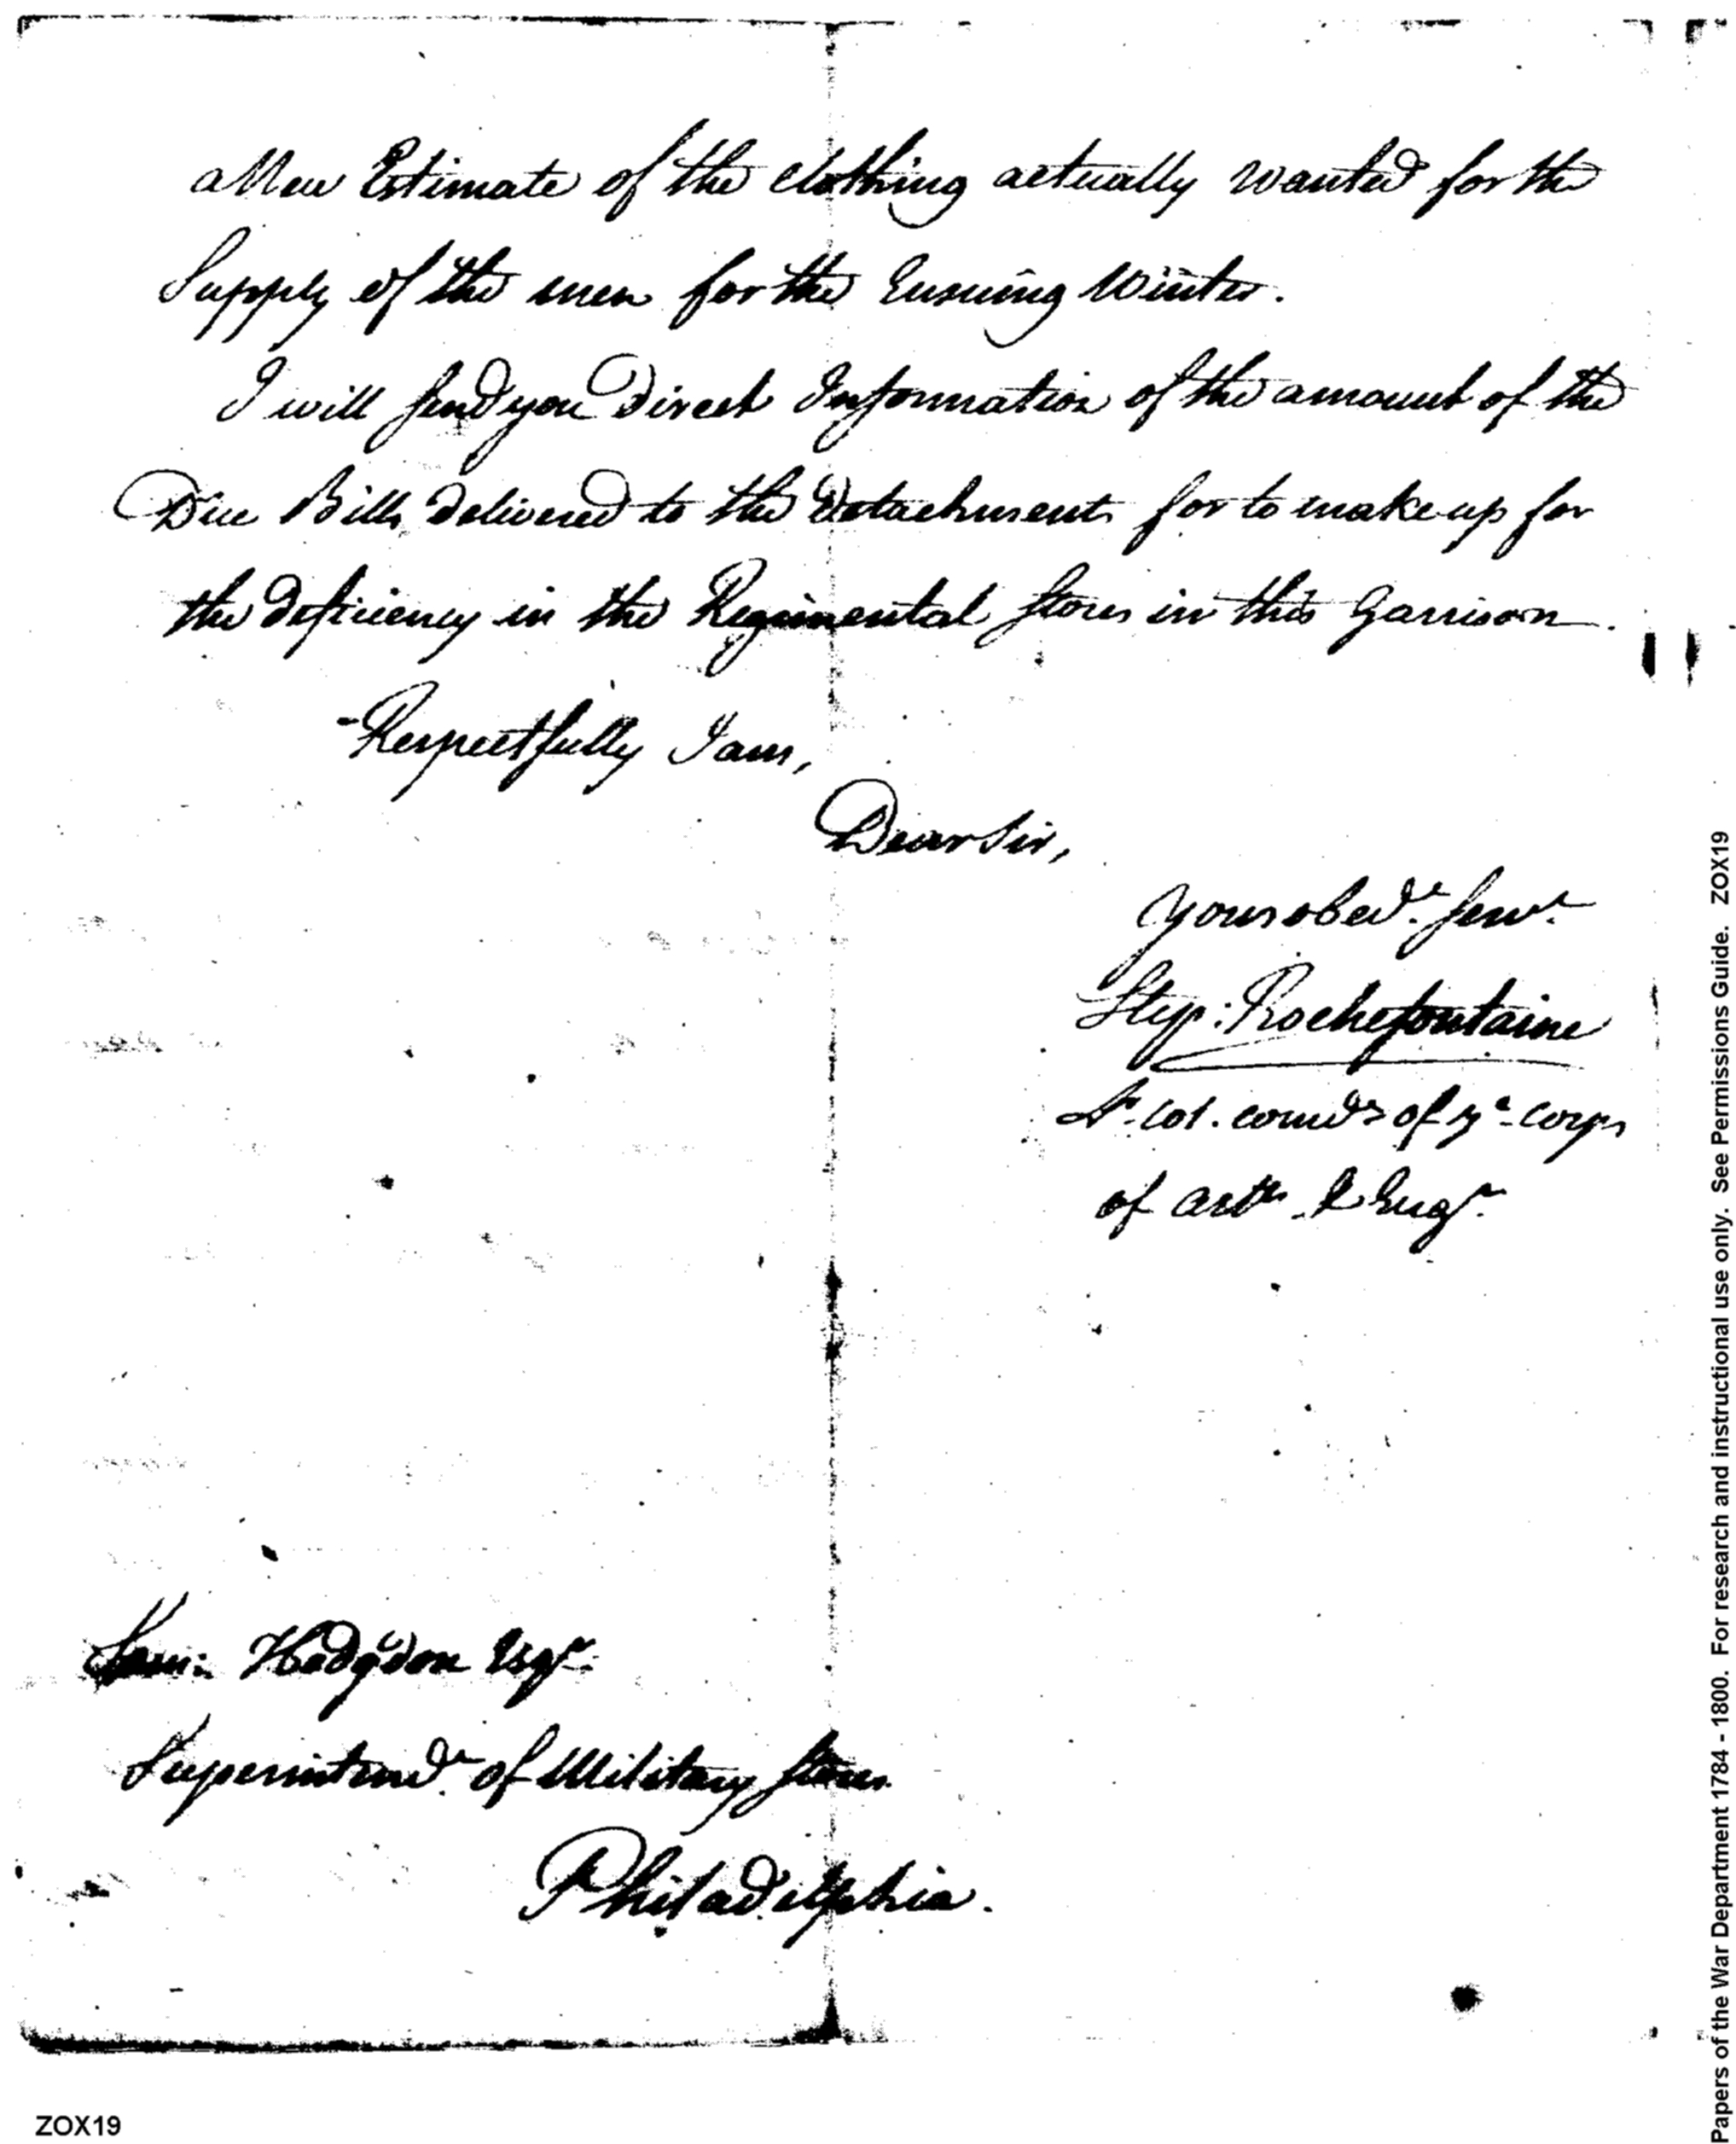 a New Estimate of the clothing actually wanted for the
Supply of the men for the Ensuing Winter.
I will send you Direct Information of the amount of the
Due Bills Delivered to the Detachments for to make up for
the Deficiency in the Regimental Stores in this Garrison.
Respectfully I am,
Dear Sir,
Your obedt. servt.
Step: Rochefontaine
Lt. Col. comdr of ye corps
of arts & Engrs.
Sam: Hodgdon Esqr.
Superintendt. of Military Stores
Philadelphia.
ZOX19
Papers of the War Department 1784 - 1800. For research and instructional use only. See Permissions Guide. ZOX19